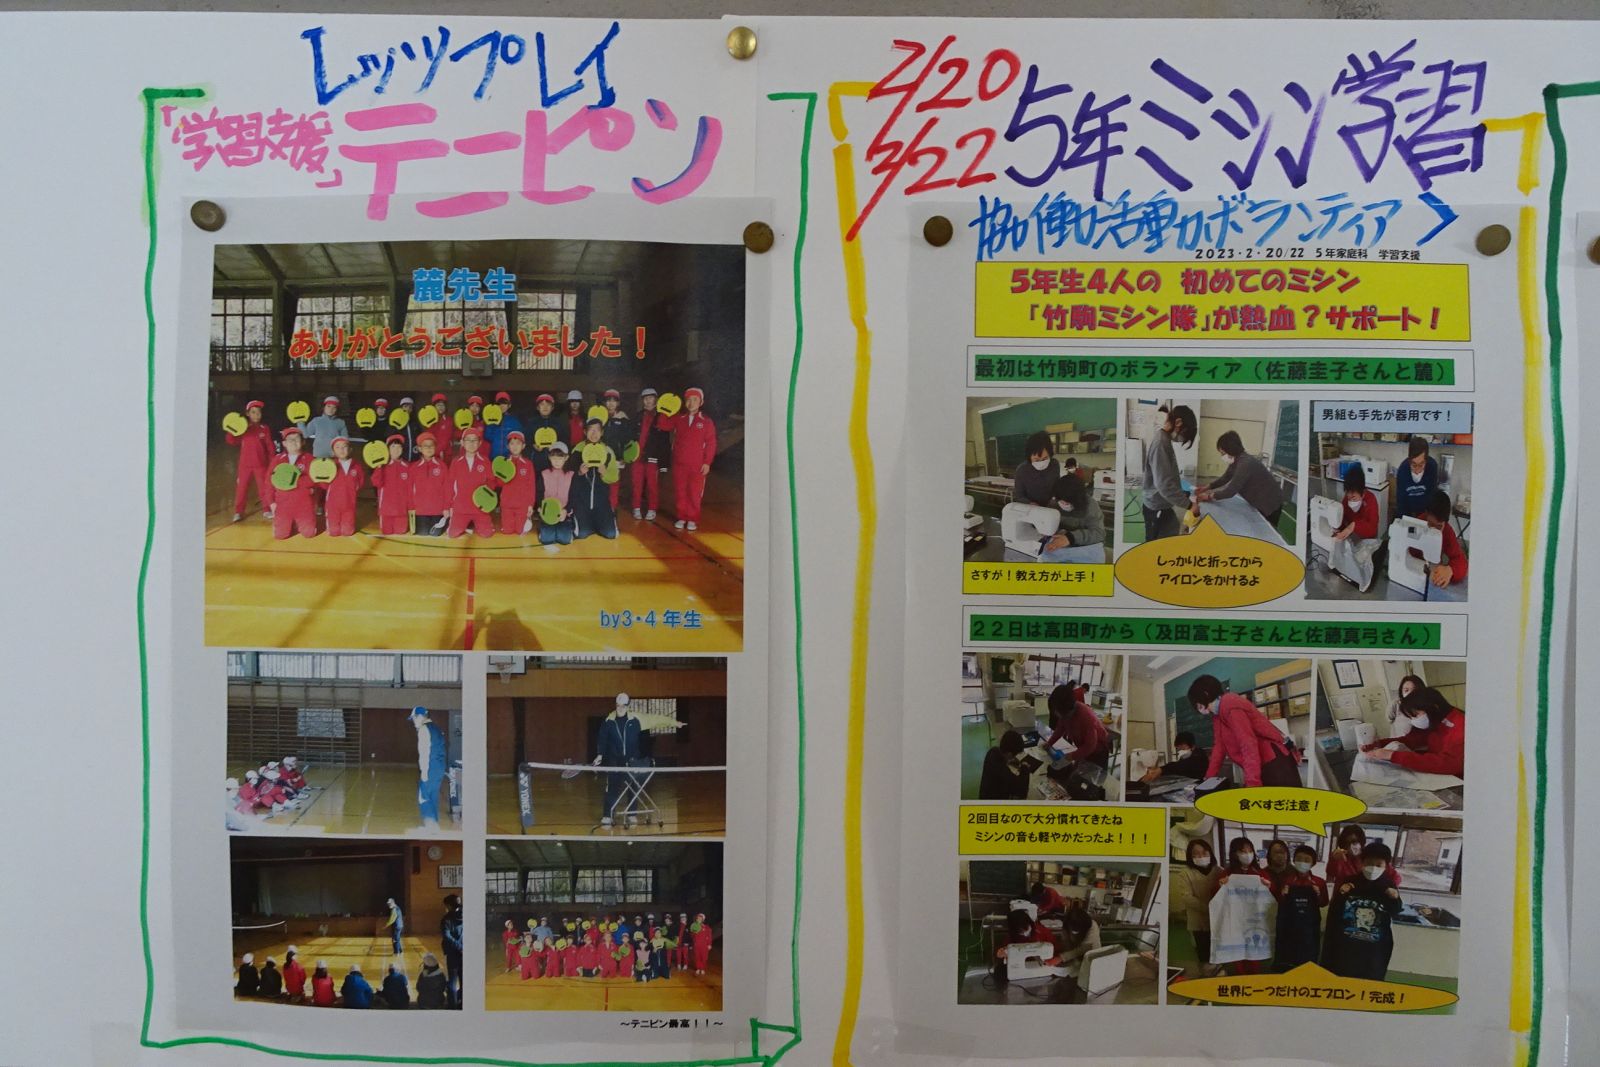 レッツプレイ
「学習支援」テニピン
麓先生
ありがとうございました！
by3・4年生
YONEX
～テニピン最高！！～
2/20
3/22
5年ミシン学習
協働活動ボランティア
2023・2・20/22 5年家庭科 学習支援
5年生4人の 初めてのミシン
「竹駒ミシン隊」が熱血？サポート！
最初は竹駒町のボランティア（佐藤圭子さんと麓）
男組も手先が器用です！
さすが！教え方が上手！
しっかりと折ってから
アイロンをかけるよ
22日は高田町から（及田富士子さんと佐藤真弓さん）
食べすぎ注意！
2回目なので大分慣れてきたね
ミシンの音も軽やかだったよ！！！
世界に一つだけのエプロン！完成！